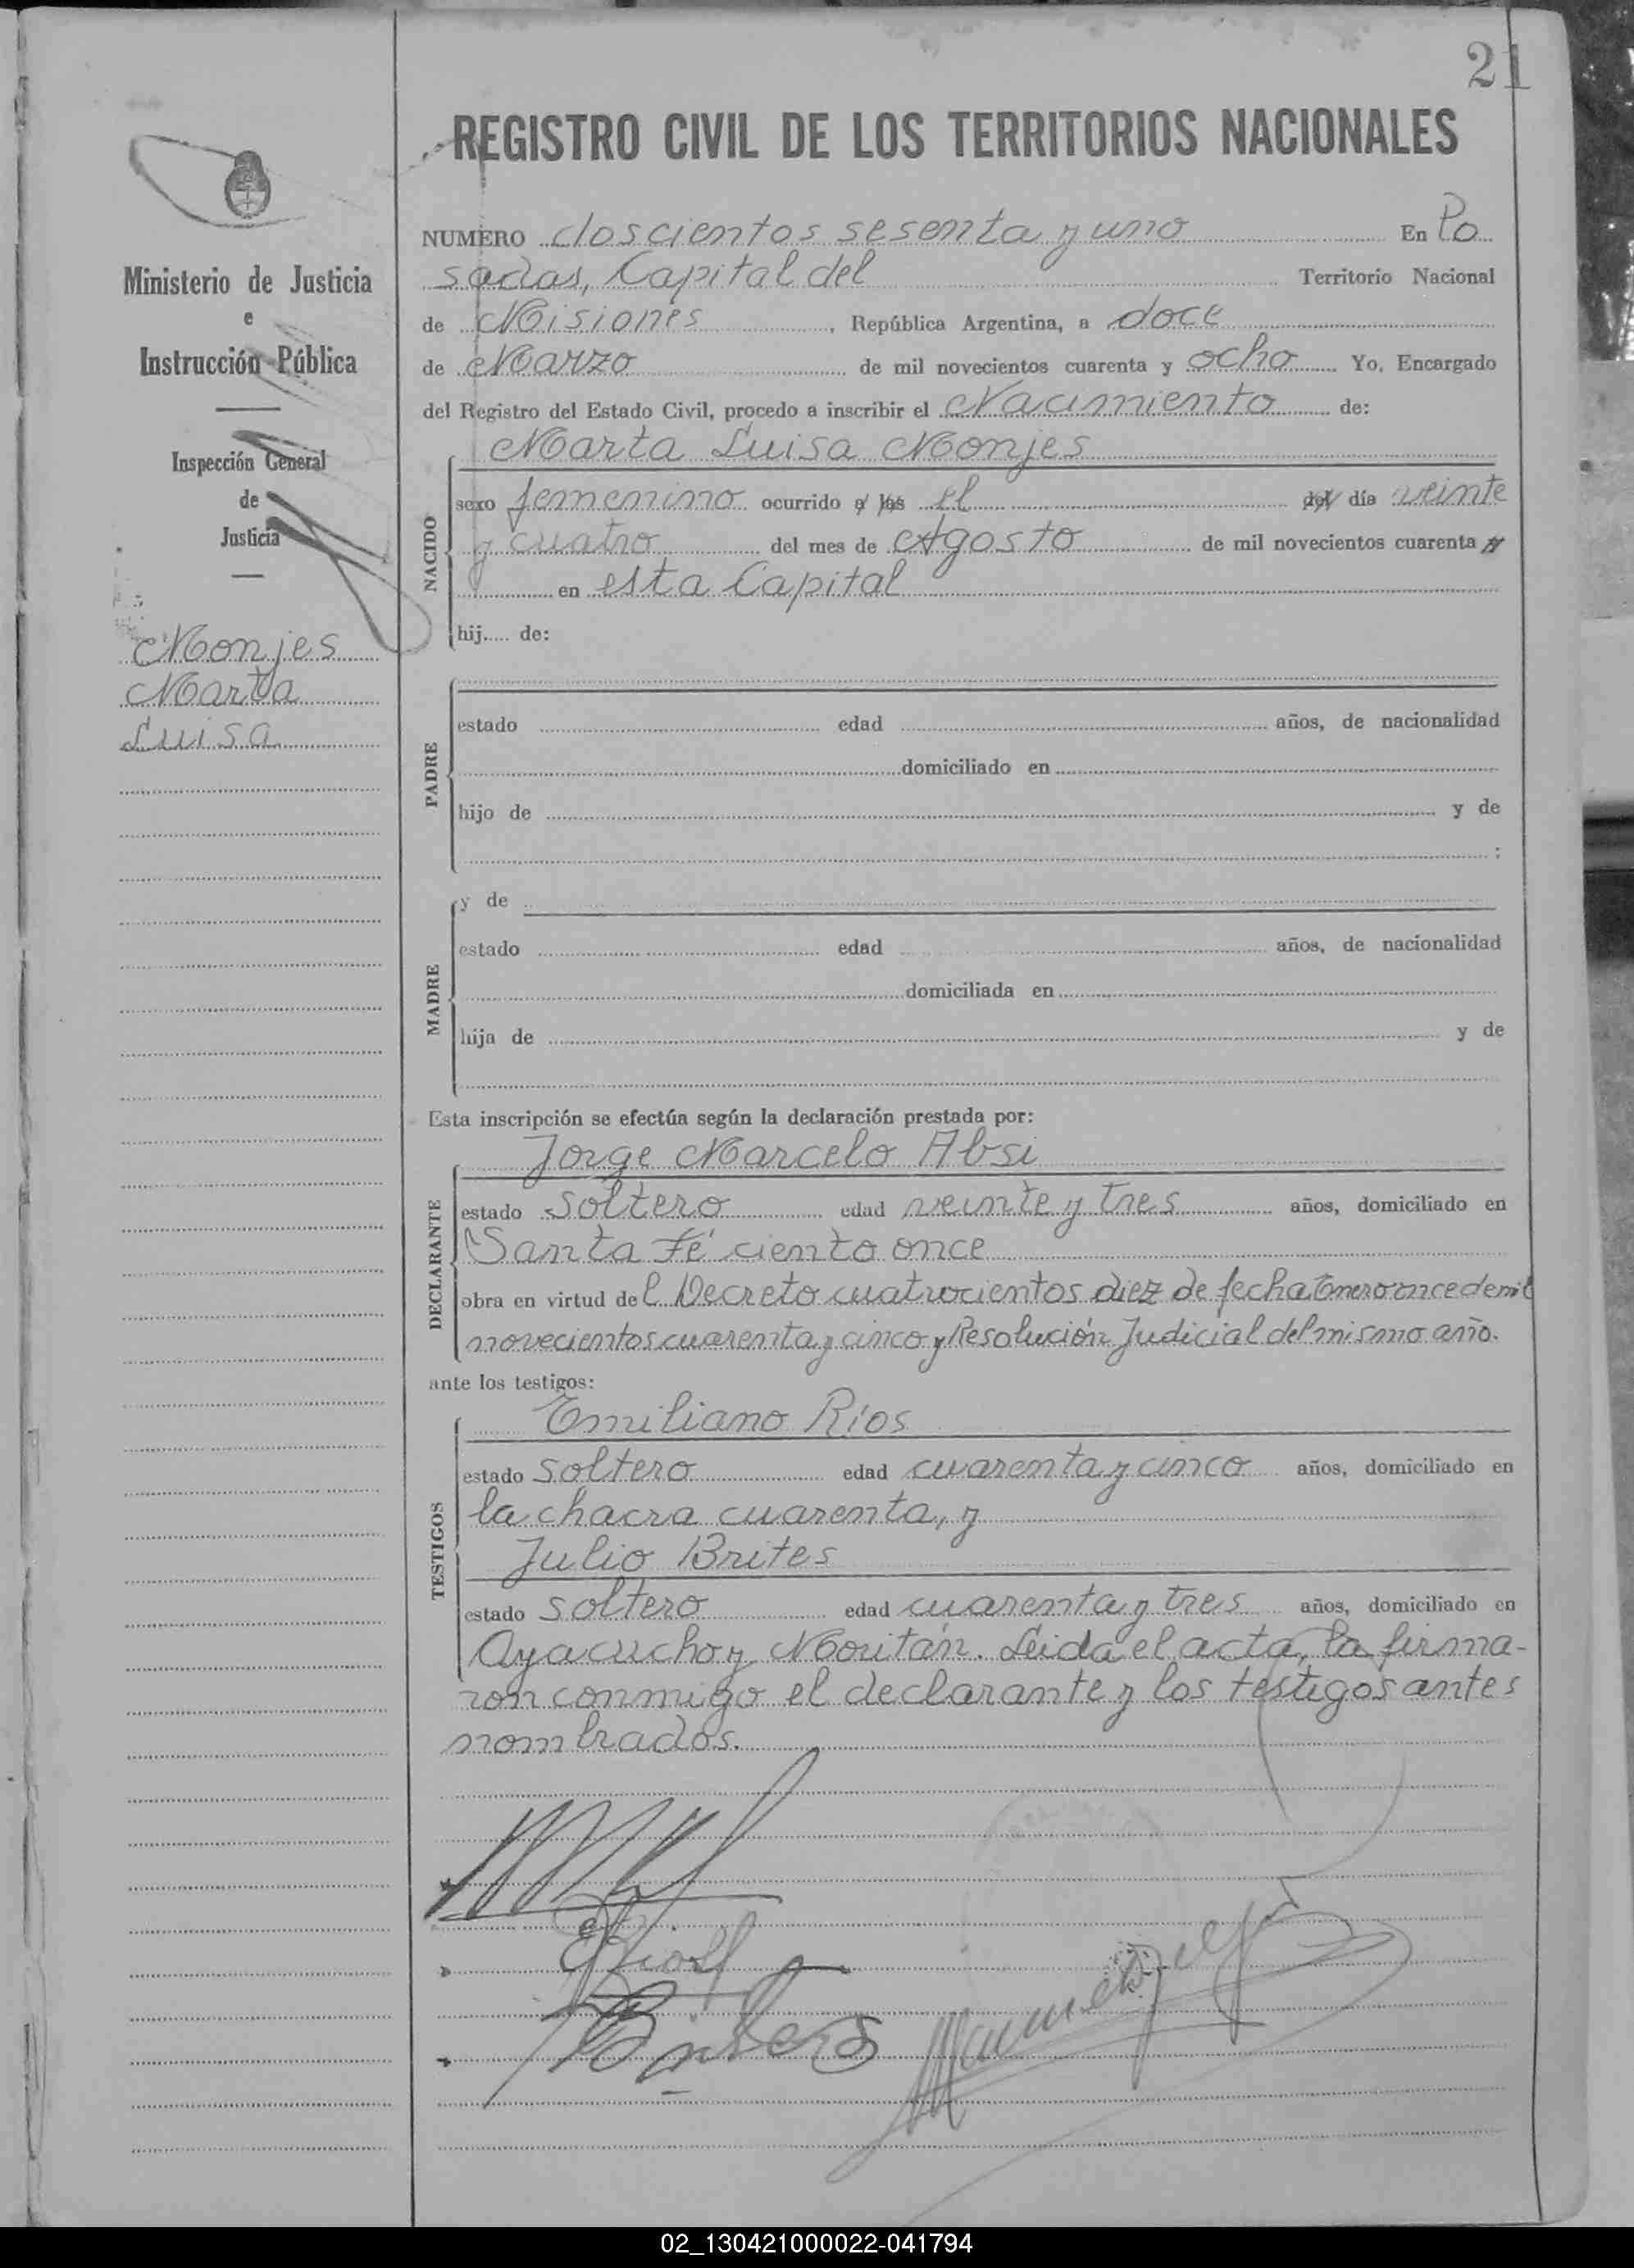 21
REGISTRO CIVIL DE LOS TERRITORIOS NACIONALES
Ministerio de Justicia
e
Instrucción Pública
Inspección General
de
Justicia
Monjes
Marta
Luisa
NUMERO doscientos sesenta y uno En Po
sadas, Capital del Territorio Nacional
de Misiones, República Argentina, a doce
de Marzo de mil novecientos cuarenta y ocho Yo, Encargado
del Registro del Estado Civil, procedo a inscribir el Nacimiento de:
NACIDO
Marta Luisa Monjes
sexo femenino ocurrido a las el del día veinte
y cuatro del mes de Agosto de mil novecientos cuarenta y
en esta Capital
hij..... de:
PADRE
estado edad años, de nacionalidad
domiciliado en
hijo de y de
;
MADRE
y de
estado edad años, de nacionalidad
domiciliada en
hija de y de
Esta inscripción se efectúa según la declaración prestada por:
DECLARANTE
Jorge Marcelo Absi
estado soltero edad veinte y tres años, domiciliado en
Santa Fé ciento once
obra en virtud del Decreto cuatrocientos diez de fecha Enero once de mil
novecientos cuarenta y cinco y Resolución Judicial del mismo año.
ante los testigos:
TESTIGOS
Emiliano Ríos
estado soltero edad cuarenta y cinco años, domiciliado en
la chacra cuarenta, y
Julio Brites
estado soltero edad cuarenta y tres años, domiciliado en
Ayacucho y Moritán. Leida el acta, la firma-
ron conmigo el declarante y los testigos antes
nombrados.
02_130421000022-041794